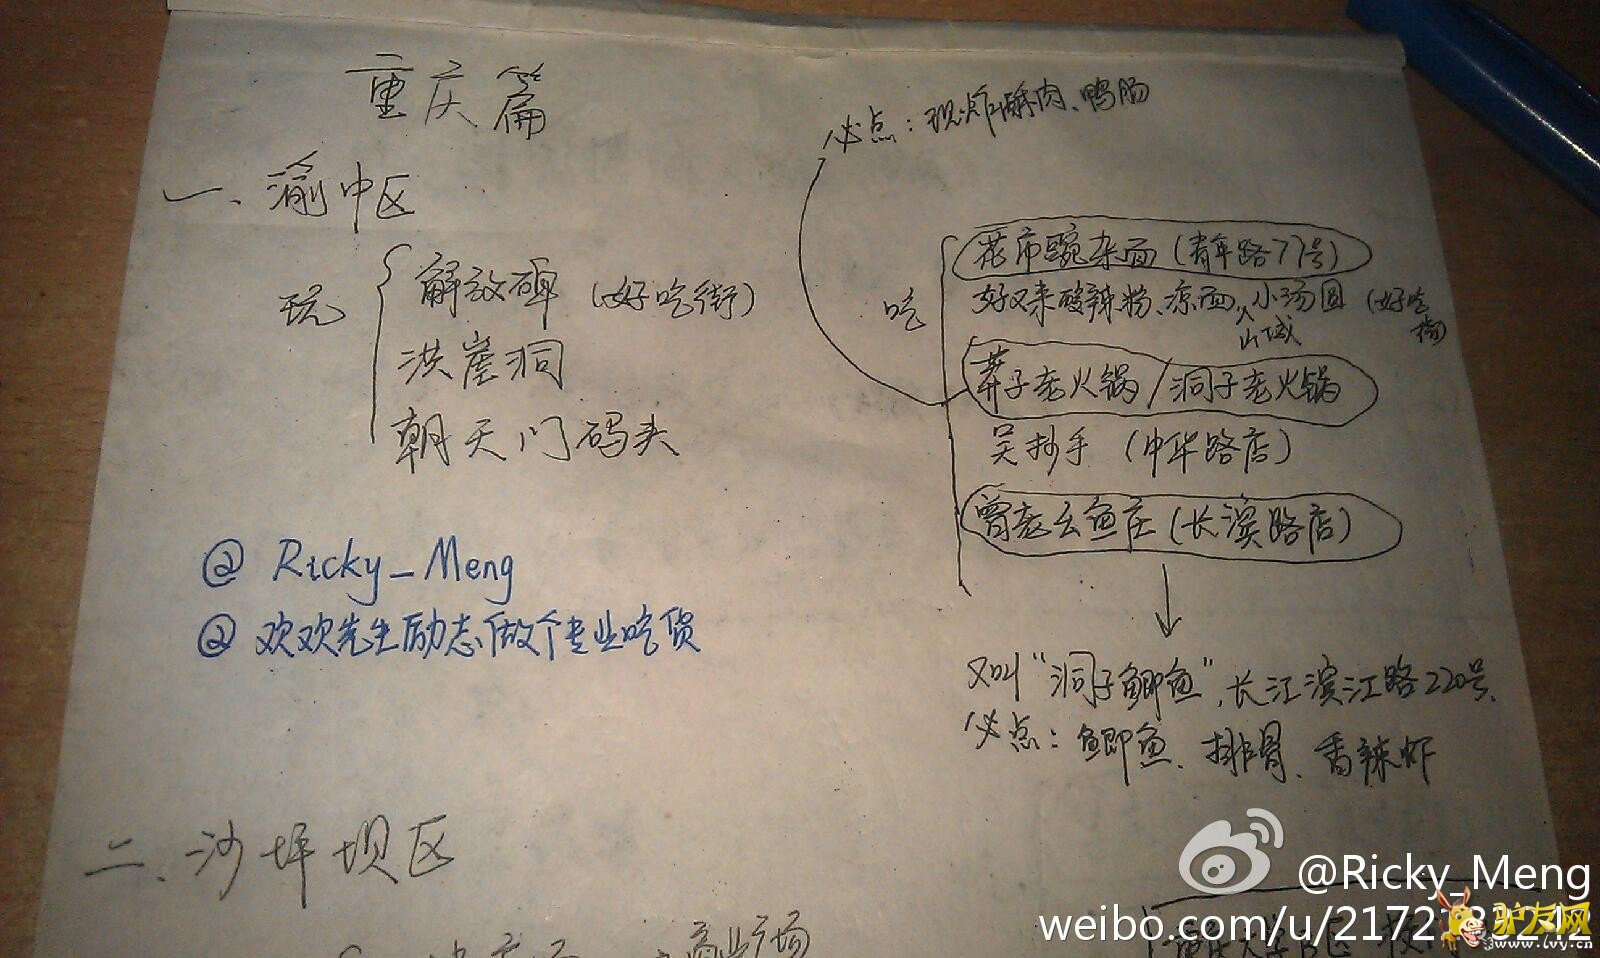 重庆篇
必点：现炸酥肉、鸭肠
一、渝中区
玩
解放碑（好吃街）
洪崖洞
朝天门码头
吃
花市豌杂面（青年路77号）
好又来酸辣粉、凉面、山城小汤圆（好吃街）
莽子老火锅/洞子老火锅
吴抄手（中华路店）
曾老幺鱼庄（长滨路店）
又叫“洞子鲫鱼”，长江滨江路220号、
必点：鲫鱼、排骨、香辣虾
@Ricky_Meng
@欢欢先生励志做个专业吃货
二、沙坪坝区
商业广场
@Ricky_Meng
weibo.com/u/2172783242
驴友网
www.lvy.cn